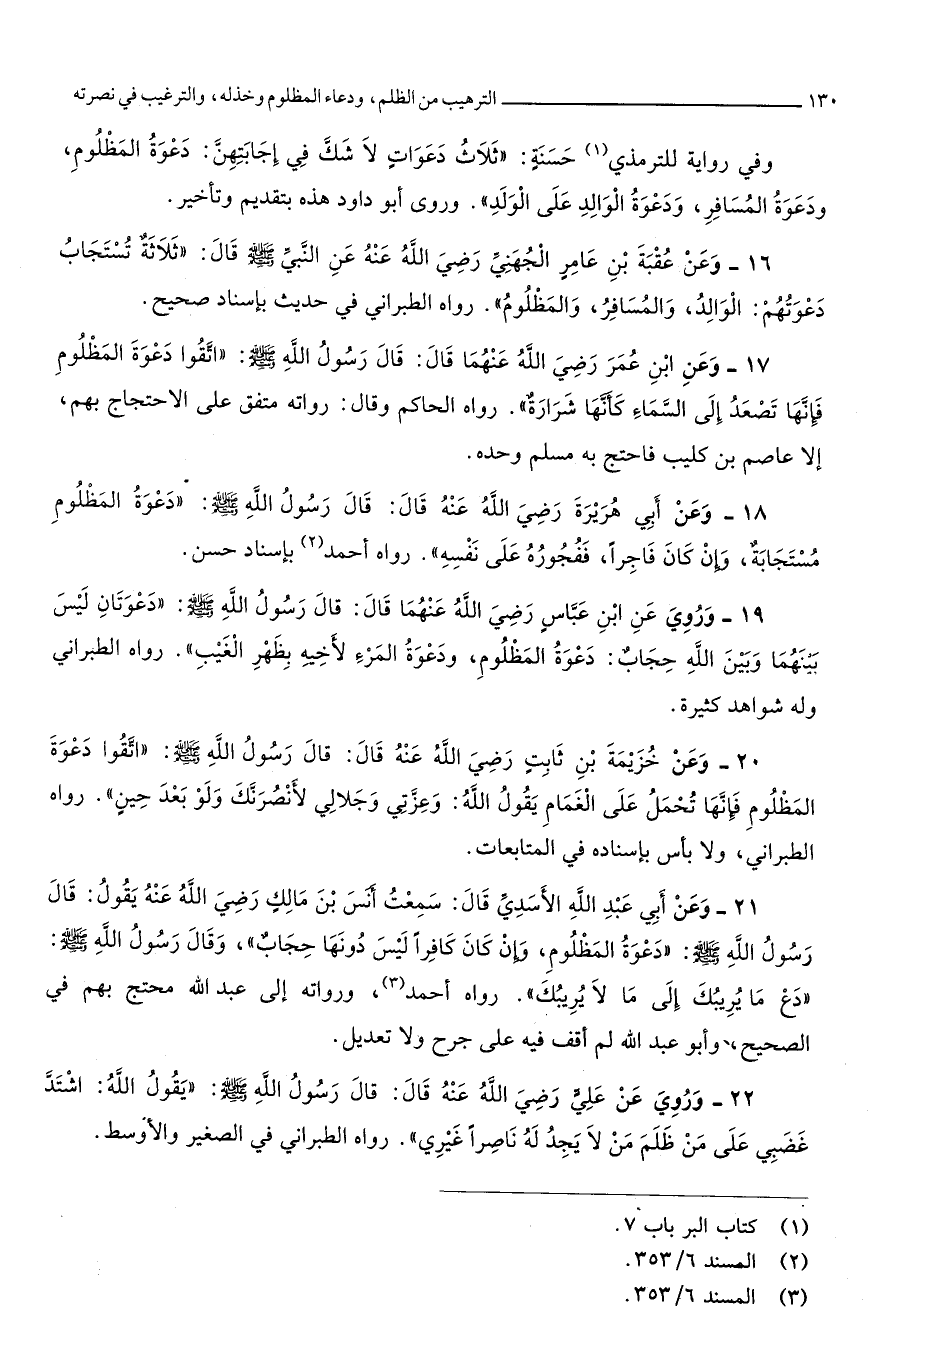 ١٣٠ ــــــــــــــــــ الترهيب من الظلم، ودعاء المظلوم وخذله، والترغيب في نصرته
وفي رواية للترمذي(١) حَسَنَةٍ: «ثَلَاثُ دَعَوَاتٍ لاَ شَكَّ فِي إِجَابَتِهِنَّ: دَعْوَةُ المَظْلُومِ،
ودَعَوَةُ المُسَافِرِ، وَدَعْوَةُ الْوَالِدِ عَلَى الْوَلَدِ». وروى أبو داود هذه بتقديم وتأخير.
١٦ ـ وَعَنْ عُقْبَةَ بْنِ عَامِرٍ الْجُهَنِيِّ رَضِيَ اللَّهُ عَنْهُ عَنِ النَّبِيِّ ﷺ قَالَ: «ثَلَاثَةٌ تُسْتَجَابُ
دَعْوَتُهُمْ: الْوَالِدُ، وَالمُسَافِرُ، وَالمَظْلُومُ». رواه الطبراني في حديث بإسناد صحيح.
١٧ ـ وَعَنِ ابْنِ عُمَرَ رَضِيَ اللَّهُ عَنْهُمَا قَالَ: قَالَ رَسُولُ اللَّهِ ﷺ: «اتَّقُوا دَعْوَةَ المَظْلُومِ
فَإِنَّهَا تَصْعَدُ إِلَى السَّمَاءِ كَأَنَّهَا شَرَارَةٌ». رواه الحاكم وقال: رواته متفق على الاحتجاج بهم،
إلا عاصم بن كليب فاحتج به مسلم وحده.
١٨ ـ وَعَنْ أَبِي هُرَيْرَةَ رَضِيَ اللَّهُ عَنْهُ قَالَ: قَالَ رَسُولُ اللَّهِ ﷺ: «دَعْوَةُ المَظْلُومِ
مُسْتَجَابَةٌ، وَإِنْ كَانَ فَاجِراً، فَفُجُورُهُ عَلَى نَفْسِهِ». رواه أحمد(٢) بإسناد حسن.
١٩ ـ وَرُوِيَ عَنِ ابْنِ عَبَّاسٍ رَضِيَ اللَّهُ عَنْهُمَا قَالَ: قالَ رَسُولُ اللَّهِ ﷺ: «دَعْوَتَانِ لَيْسَ
بَيْنَهُمَا وَبَيْنَ اللَّهِ حِجَابٌ: دَعْوَةُ المَظْلُومِ، ودَعْوَةُ المَرْءِ لأَخِيهِ بِظَهْرِ الْغَيْبِ». رواه الطبراني
وله شواهد كثيرة.
٢٠ ـ وَعَنْ خُزَيْمَةَ بْنِ ثَابِتٍ رَضِيَ اللَّهُ عَنْهُ قَالَ: قالَ رَسُولُ اللَّهِ ﷺ: «اتَّقُوا دَعْوَةَ
المَظْلُومِ فَإِنَّهَا تُحْمَلُ عَلَى الْغَمَامِ يَقُولُ اللَّهُ: وَعِزَّتِي وَجَلالِي لأَنْصُرَنَّكَ وَلَوْ بَعْدَ حِينٍ». رواه
الطبراني، ولا بأس بإسناده في المتابعات.
٢١ ـ وَعَنْ أَبِي عَبْدِ اللَّهِ الأَسَدِيِّ قَالَ: سَمِعْتُ أَنَسَ بْنَ مَالِكٍ رَضِيَ اللَّهُ عَنْهُ يَقُولُ: قَالَ
رَسُولُ اللَّهِ ﷺ: «دَعْوَةُ المَظْلُومِ، وَإِنْ كَانَ كَافِراً لَيْسَ دُونَهَا حِجَابٌ»، وَقَالَ رَسُولُ اللَّهِ ﷺ:
«دَعْ مَا يُرِيبُكَ إِلَى مَا لاَ يُرِيبُكَ». رواه أحمد(٣)، ورواته إلى عبد الله محتج بهم في
الصحيح، وأبو عبد الله لم أقف فيه على جرح ولا تعديل.
٢٢ ـ وَرُوِيَ عَنْ عَلِيٍّ رَضِيَ اللَّهُ عَنْهُ قَالَ: قالَ رَسُولُ اللَّهِ ﷺ: «يَقُولُ اللَّهُ: اشْتَدَّ
غَضَبِي عَلَى مَنْ ظَلَمَ مَنْ لاَ يَجِدُ لَهُ نَاصِراً غَيْرِي». رواه الطبراني في الصغير والأوسط.
(١) كتاب البر باب ٧.
(٢) المسند ٦/ ٣٥٣.
(٣) المسند ٦/ ٣٥٣.